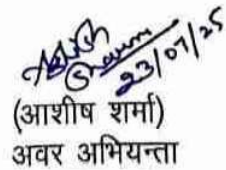 Ashish
Sharma
23/07/25
(आशीष शर्मा)
अवर अभियन्ता